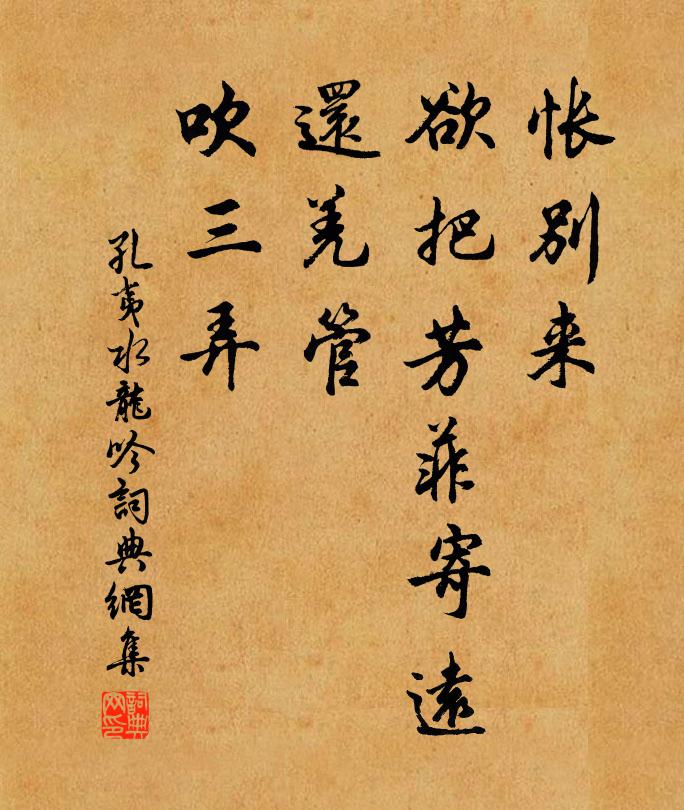 怅别来
欲把芳菲寄遠
還羌管
吹三弄
孔夷水龍吟詞典網集
詞典网印